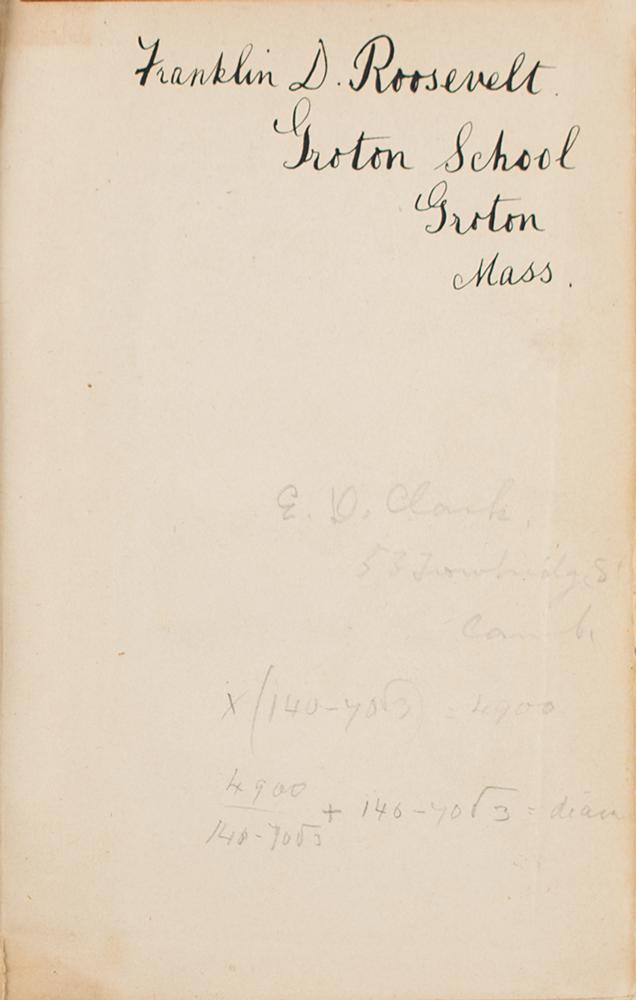 Franklin D. Roosevelt.
Groton School
Groton
Mass.
E. D. Clark,
53 Trowbridge St
Camb.
x(140-70√3) = 4900
4900
140-70√3
+ 140-70√3 = diam